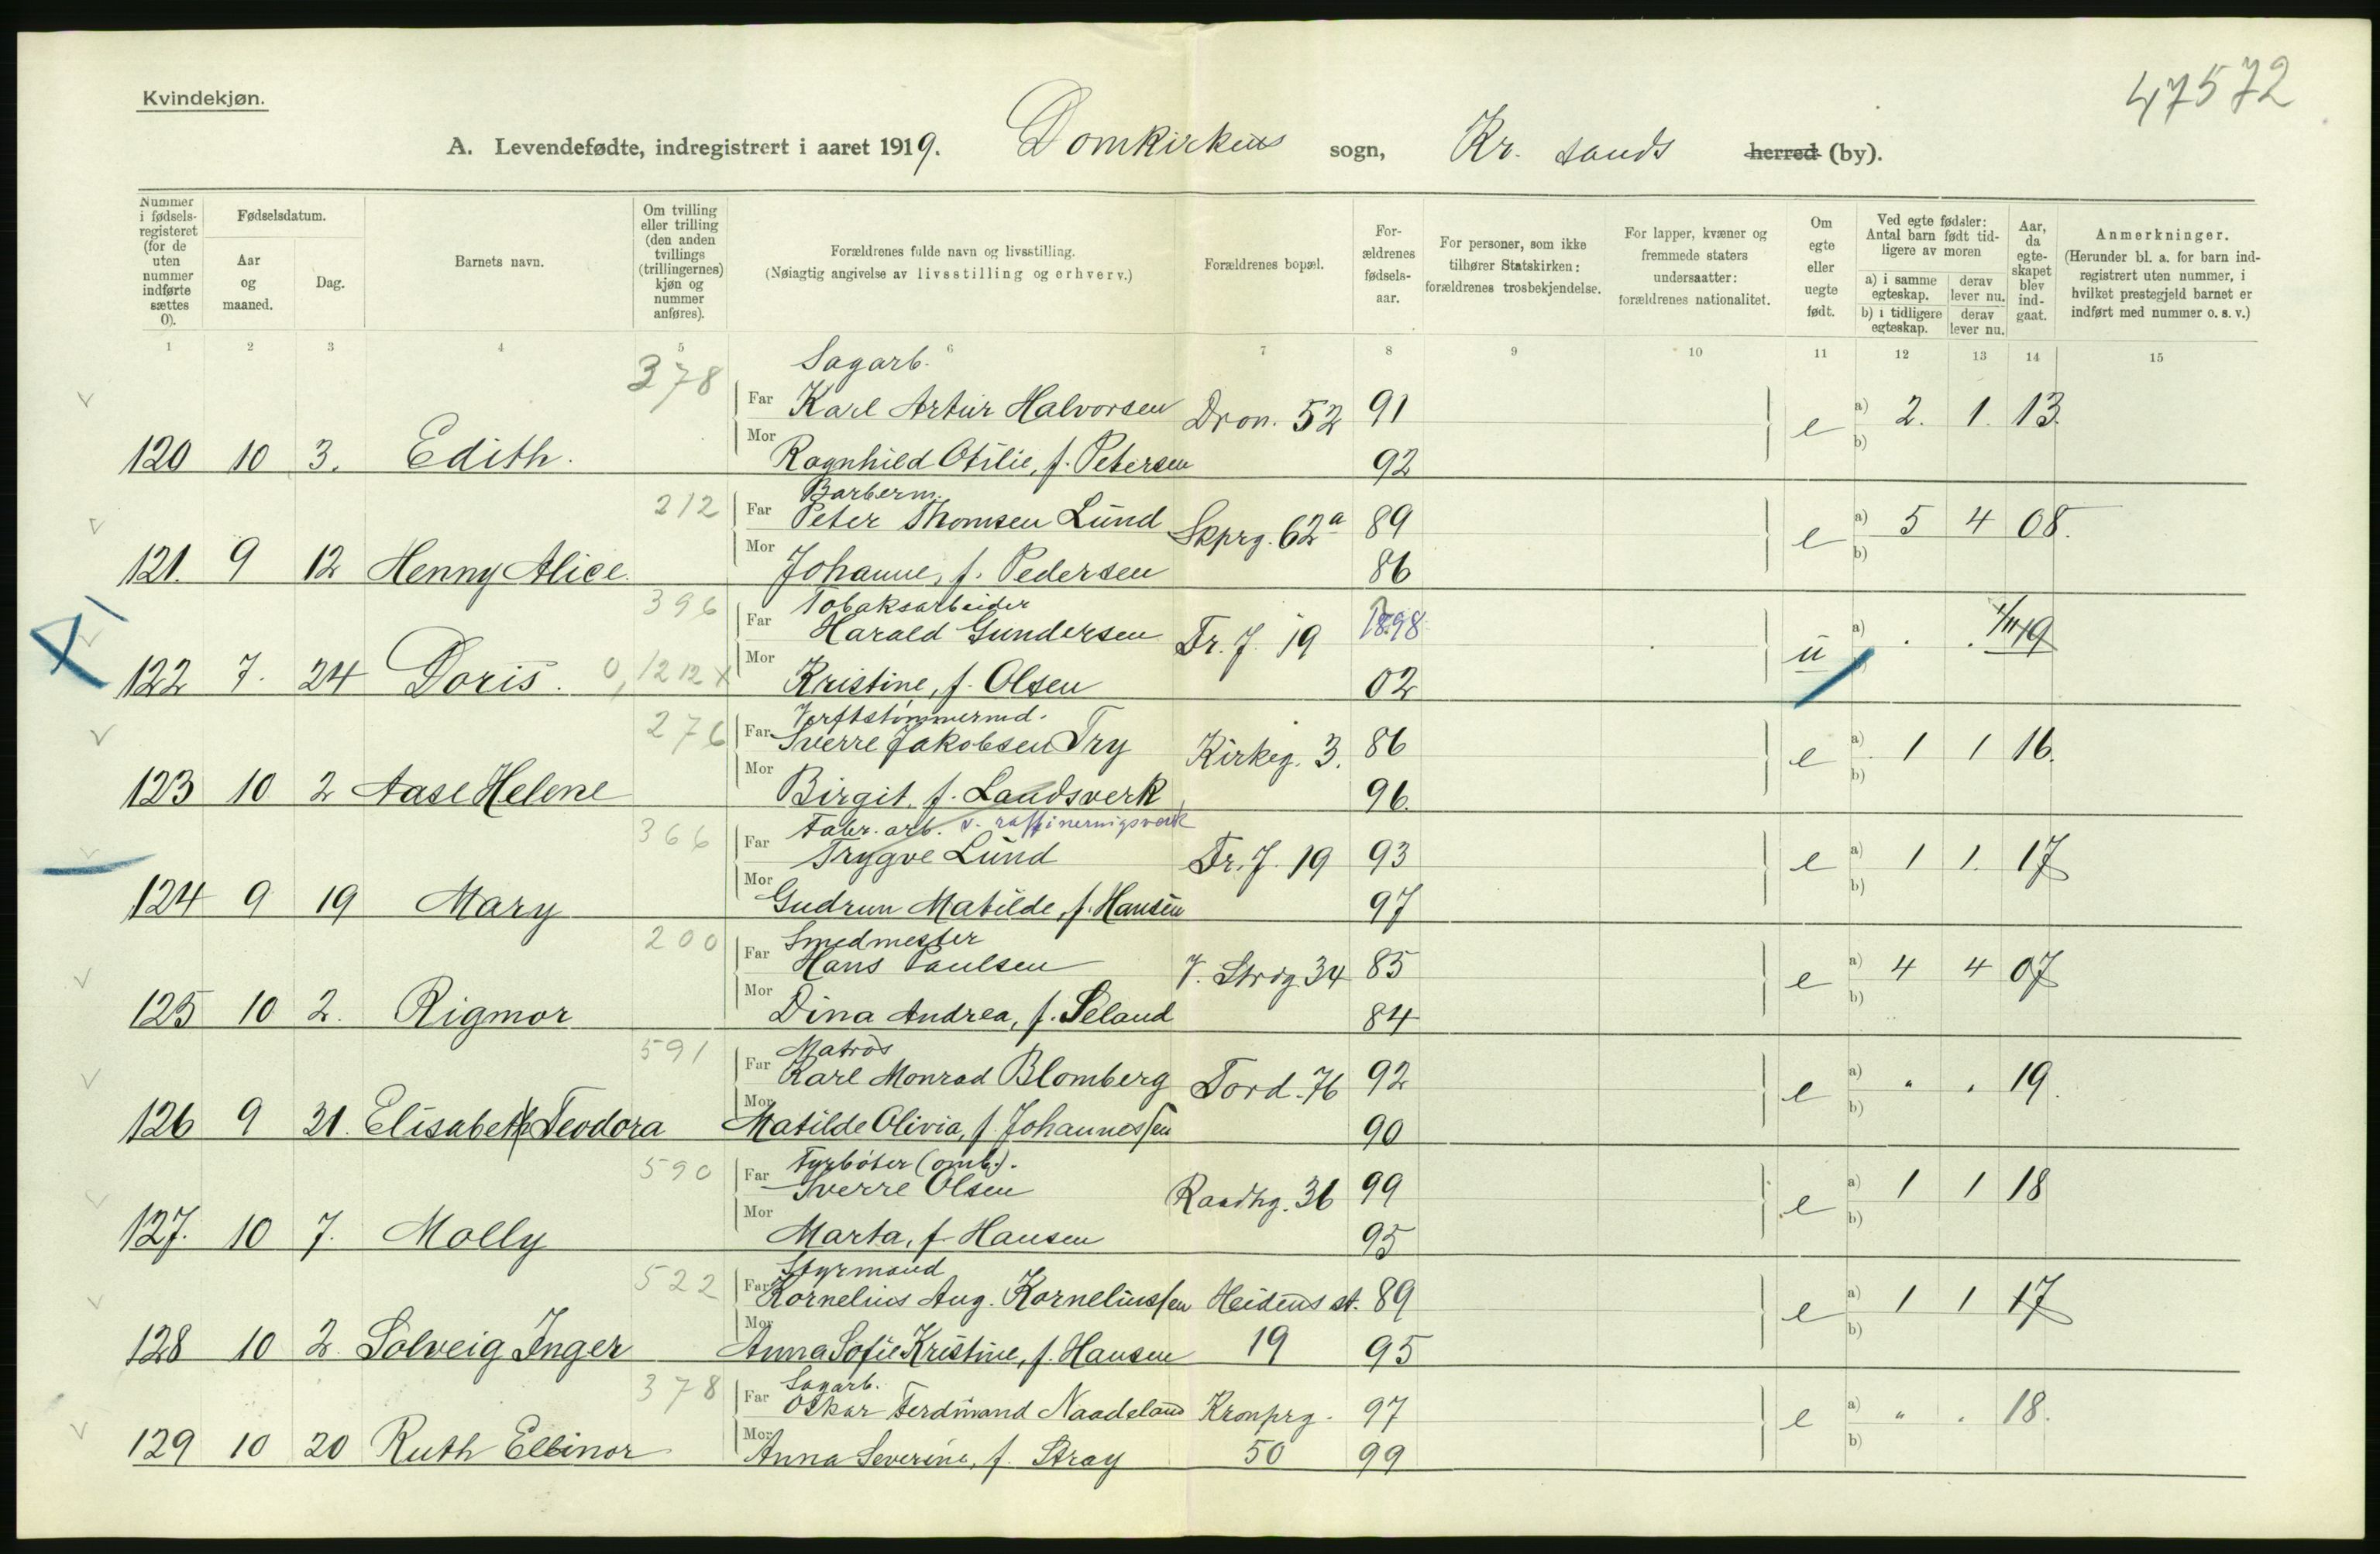 47572
Kvindekjøn.
A. Levendefødte, indregistrert i aaret 1919. Domkirkens sogn, Kr. sands herred (by).
Nummer i fødsels-registeret (for de uten nummer indførte sættes 0).
Fødselsdatum.
Aar og maaned.
Dag.
Barnets navn.
Om tvilling eller trilling (den anden tvillings (trillingernes) kjøn og nummer anføres).
Forældrenes fulde navn og livsstilling.
(Nøiagtig angivelse av livsstilling og erhverv.)
Forældrenes bopæl.
For-ældrenes fødsels-aar.
For personer, som ikke tilhører Statskirken: forældrenes trosbekjendelse.
For lapper, kvæner og fremmede staters undersaatter: forældrenes nationalitet.
Om egte eller uegte født.
Ved egte fødsler: Antal barn født tid-ligere av moren
a) i samme egteskap. derav lever nu.
b) i tidligere egteskap. derav lever nu.
Aar, da egte-skapet blev ind-gaat.
Anmerkninger.
(Herunder bl. a. for barn ind-registrert uten nummer, i hvilket prestegjeld barnet er indført med nummer o. s. v.)
1 2 3 4 5 6 7 8 9 10 11 12 13 14 15
378 Sagarb.
Far Karl Artur Halvorsen Dron. 52 91 e a) 2. 1. 13.
120 10 3. Edith. Mor Ragnhild Otilie, f. Petersen 92 b)
212 Barberm.
Far Peter Thomsen Lund Skprg. 62a 89 e a) 5 4 08.
121. 9 12 Henny Alice. Mor Johanne, f. Pedersen 86 b)
396 Tobaksarbeider
Far Harald Gundersen Fr. J. 19 1898 u a) . . 1/11 19
122 7. 24 Doris. 0,1212 x Mor Kristine, f. Olsen 02
276 Verftstømmermd.
Far Sverre Jakobsen Try Kirkeg. 3. 86 e a) 1 1 16.
123 10 2 Aase Helene Mor Birgit, f. Landsverk 96. b)
366 Fabr. arb. v. raffineringsverk
Far Trygve Lund Fr. J. 19 93 e a) 1 1. 17
124 9 19 Mary Mor Gudrun Matilde, f. Hansen 97 b)
200 Smedmester
Far Hans Paulsen V. Strdg. 34 85 e a) 4 4 07
125 10 2. Rigmor Mor Dina Andrea, f. Seland 84 b)
591 Matros
Far Karl Monrad Blomberg Tord. 76 92 e a) " . 19.
126 9 21. Elisabeth Teodora Mor Matilde Olivia, f. Johannessen 90 b)
590 Fyrbøter (omb.).
Far Sverre Olsen Raadhg. 36 99 e a) 1 1 18
127. 10 7. Molly Mor Marta, f. Hansen 95 b)
522 Styrmand
Far Kornelius Aug. Korneliussen Heidens st. 89 e a) 1 1 17
128 10 2. Solveig Inger Mor Anna Sofie Kristine, f. Hansen 19 95 b)
378 Sagarb.
Far Oskar Ferdinand Naadeland Kronprg. 97 e a) " . 18.
129 10 20 Ruth Ellinor Mor Anna Severine, f. Stray 50 99 b)